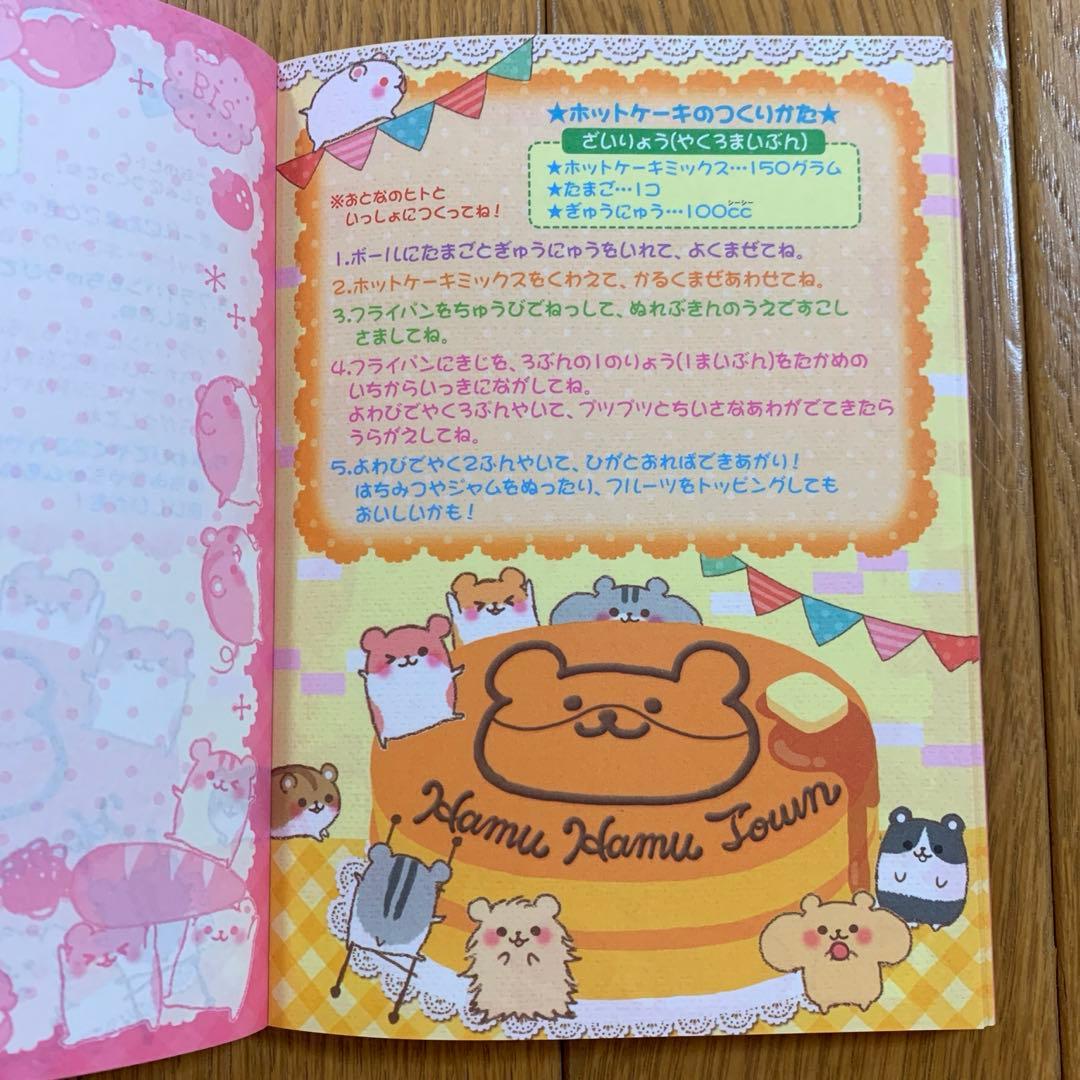 Bis
★ホットケーキのつくりかた★
ざいりょう(やく3まいぶん)
★ホットケーキミックス…150グラム
★たまご…1コ
シーシー
★ぎゅうにゅう…100cc
※おとなのヒトと
いっしょにつくってね!
1.ボールにたまごとぎゅうにゅうをいれて、よくまぜてね。
2.ホットケーキミックスをくわえて、かるくまぜあわせてね。
3.フライパンをちゅうびでねっして、ぬれぶきんのうえですこし
さましてね。
4.フライパンにきじを、3ぶんの1のりょう(1まいぶん)をたかめの
いちからいっきにながしてね。
よわびでやく3ぷんやいて、プツプツとちいさなあわがでてきたら
うらがえしてね。
5.よわびでやく2ふんやいて、ひがとおればできあがり!
はちみつやジャムをぬったり、フルーツをトッピングしても
おいしいかも!
Hamu Hamu Town